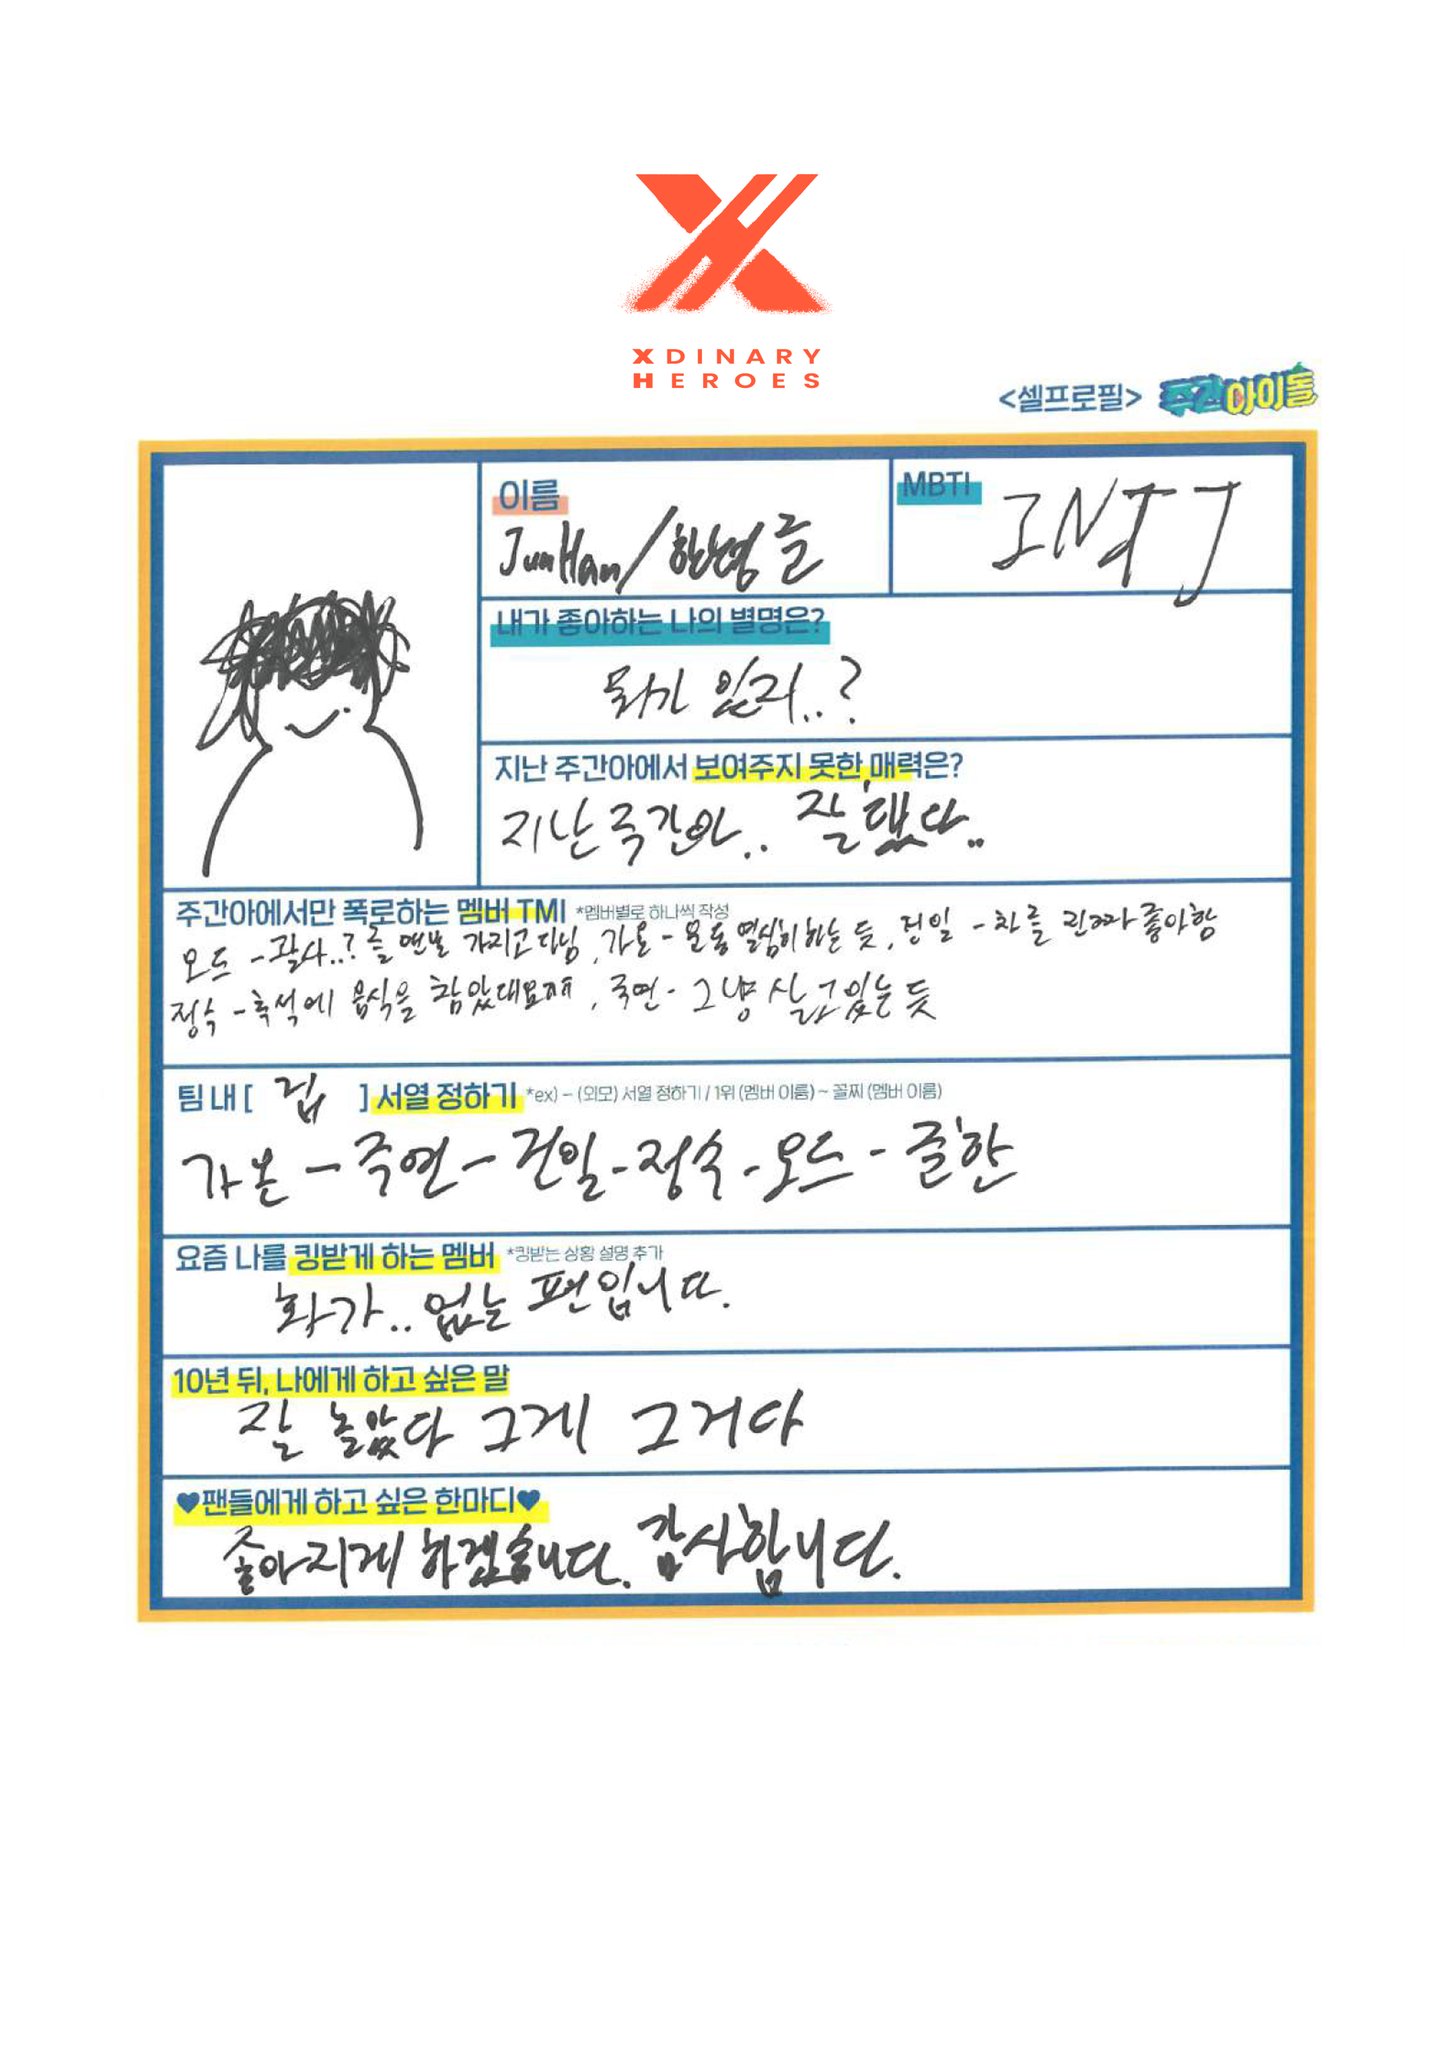 XDINARY
HEROES
<셀프로필> 주간아이돌
이름
JunHan/한형준
MBTI
INTJ
내가 좋아하는 나의 별명은?
뭐가 있지..?
지난 주간아에서 보여주지 못한 매력은?
지난 주간아.. 잘했다..
주간아에서만 폭로하는 멤버 TMI *멤버별로 하나씩 작성
오드 - 괄사..?를 맨날 가지고 다님, 가온 - 운동 열심히 하는 듯, 건일 - 차를 진짜 좋아함
정수 - 추석에 음식을 참았대요ㅠㅠ, 주연 - 그냥 살고있는 듯
팀 내 [ 립 ] 서열 정하기 *ex) - (외모) 서열 정하기 / 1위 (멤버 이름) ~ 꼴찌 (멤버 이름)
가온 - 주연 - 건일 - 정수 - 오드 - 준한
요즘 나를 킹받게 하는 멤버 *킹받는 상황 설명 추가
화가.. 없는 편입니다.
10년 뒤, 나에게 하고 싶은 말
잘 놀았다 그게 그거다
♥팬들에게 하고 싶은 한마디♥
좋아지게 하겠습니다. 감사합니다.